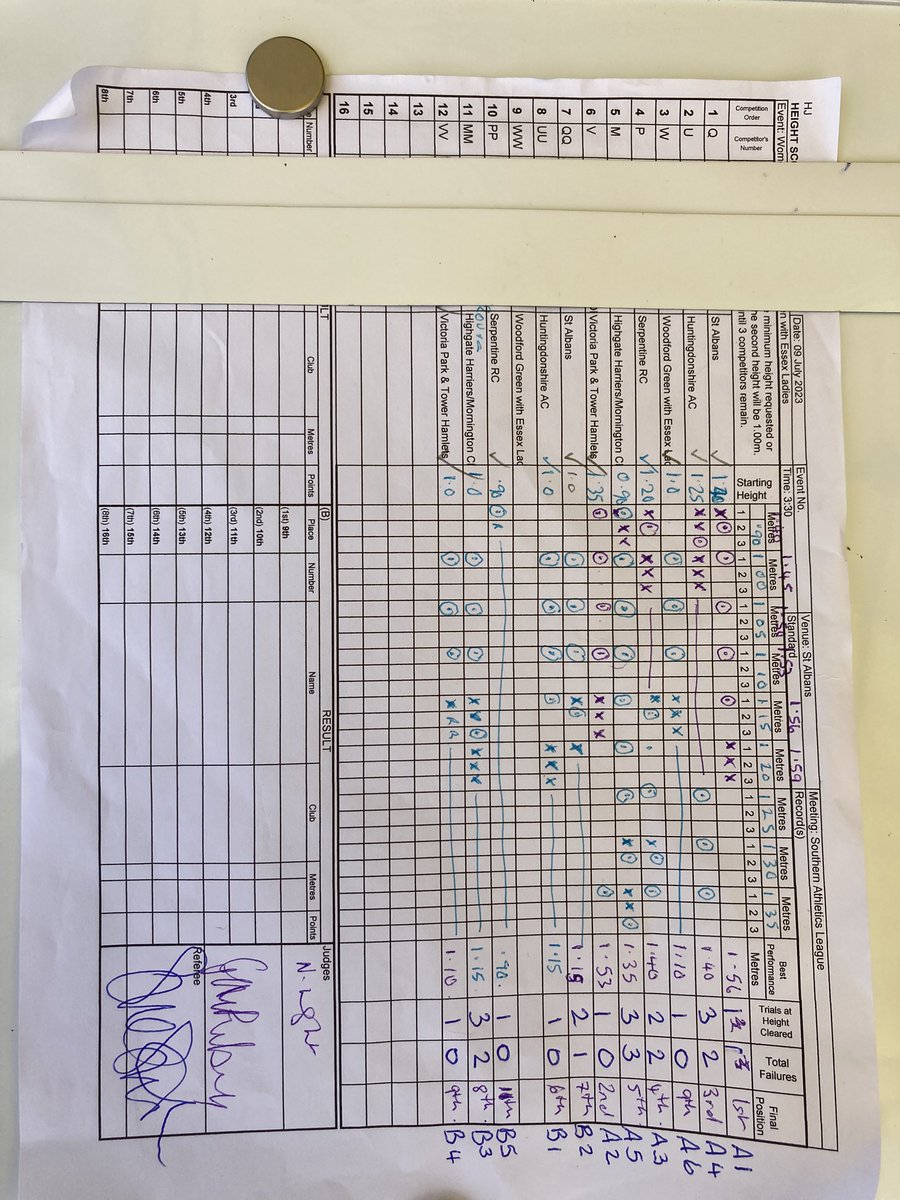 HJ
HEIGHT SC
Event: Wom
Date: 09 July 2023
Event No.
Venue: St Albans
Meeting: Southern Athletics League
n with Essex Ladies
Time: 3:30
Standard
Record(s)
minimum height requested or
he second height will be 1.00m.
ntil 3 competitors remain.
1.45 1.53 1.56 1.59
Competition Order
Competitor's Number
Starting Height
Metres Metres Metres Metres Metres Metres Metres Metres Metres
.90 1 00 1 05 1 10 1 15 1 20 1 25 1 30 1 35
1 2 3 1 2 3 1 2 3 1 2 3 1 2 3 1 2 3 1 2 3 1 2 3 1 2 3
Best Performance Metres
Trials at Height Cleared
Total Failures
Final Position
1 Q St Albans ✓ O O O O O XXX 1.56 1st A1
2 U Huntingdonshire AC ✓ 1.25 XXO XXX O O O 1.40 3 2 3rd A4
3 W Woodford Green with Essex Lad ✓ 1.0 O O O XXX 1.10 1 0 9th A6
4 P Serpentine RC ✓ 1.20 XO XXX O XO O 1.40 2 2 4th A3
5 M Highgate Harriers/Mornington C 0.90 O O O O O O XO XXO 1.35 3 3 5th A5
6 V Victoria Park & Tower Hamlets ✓ 1.35 O O O O XXX O 1.53 1 0 2nd A2
7 QQ St Albans ✓ 1.0 O O O XO X 1.15 2 1 7th B2
8 UU Huntingdonshire AC ✓ 1.0 O O O O XXX 1.15 1 0 6th B1
9 WW Woodford Green with Essex Lad
10 PP Serpentine RC ✓ .90 O R .90 1 0 11th B5
11 MM Highgate Harriers/Mornington C 1.0 O O O XXO XXX 1.15 3 2 8th B3
12 VV Victoria Park & Tower Hamlets ✓ 1.0 O O O X R R 1.10 1 0 9th B4
13
14
15
16
RESULT
LT
(B)
Number
Club
Metres
Points
Place
Number
Name
Club
Metres
Points
Judges
(1st) 9th
N. Light
(2nd) 10th
3rd
(3rd) 11th
4th
(4th) 12th
5th
(5th) 13th
Referee
6th
(6th) 14th
7th
(7th) 15th
8th
(8th) 16th